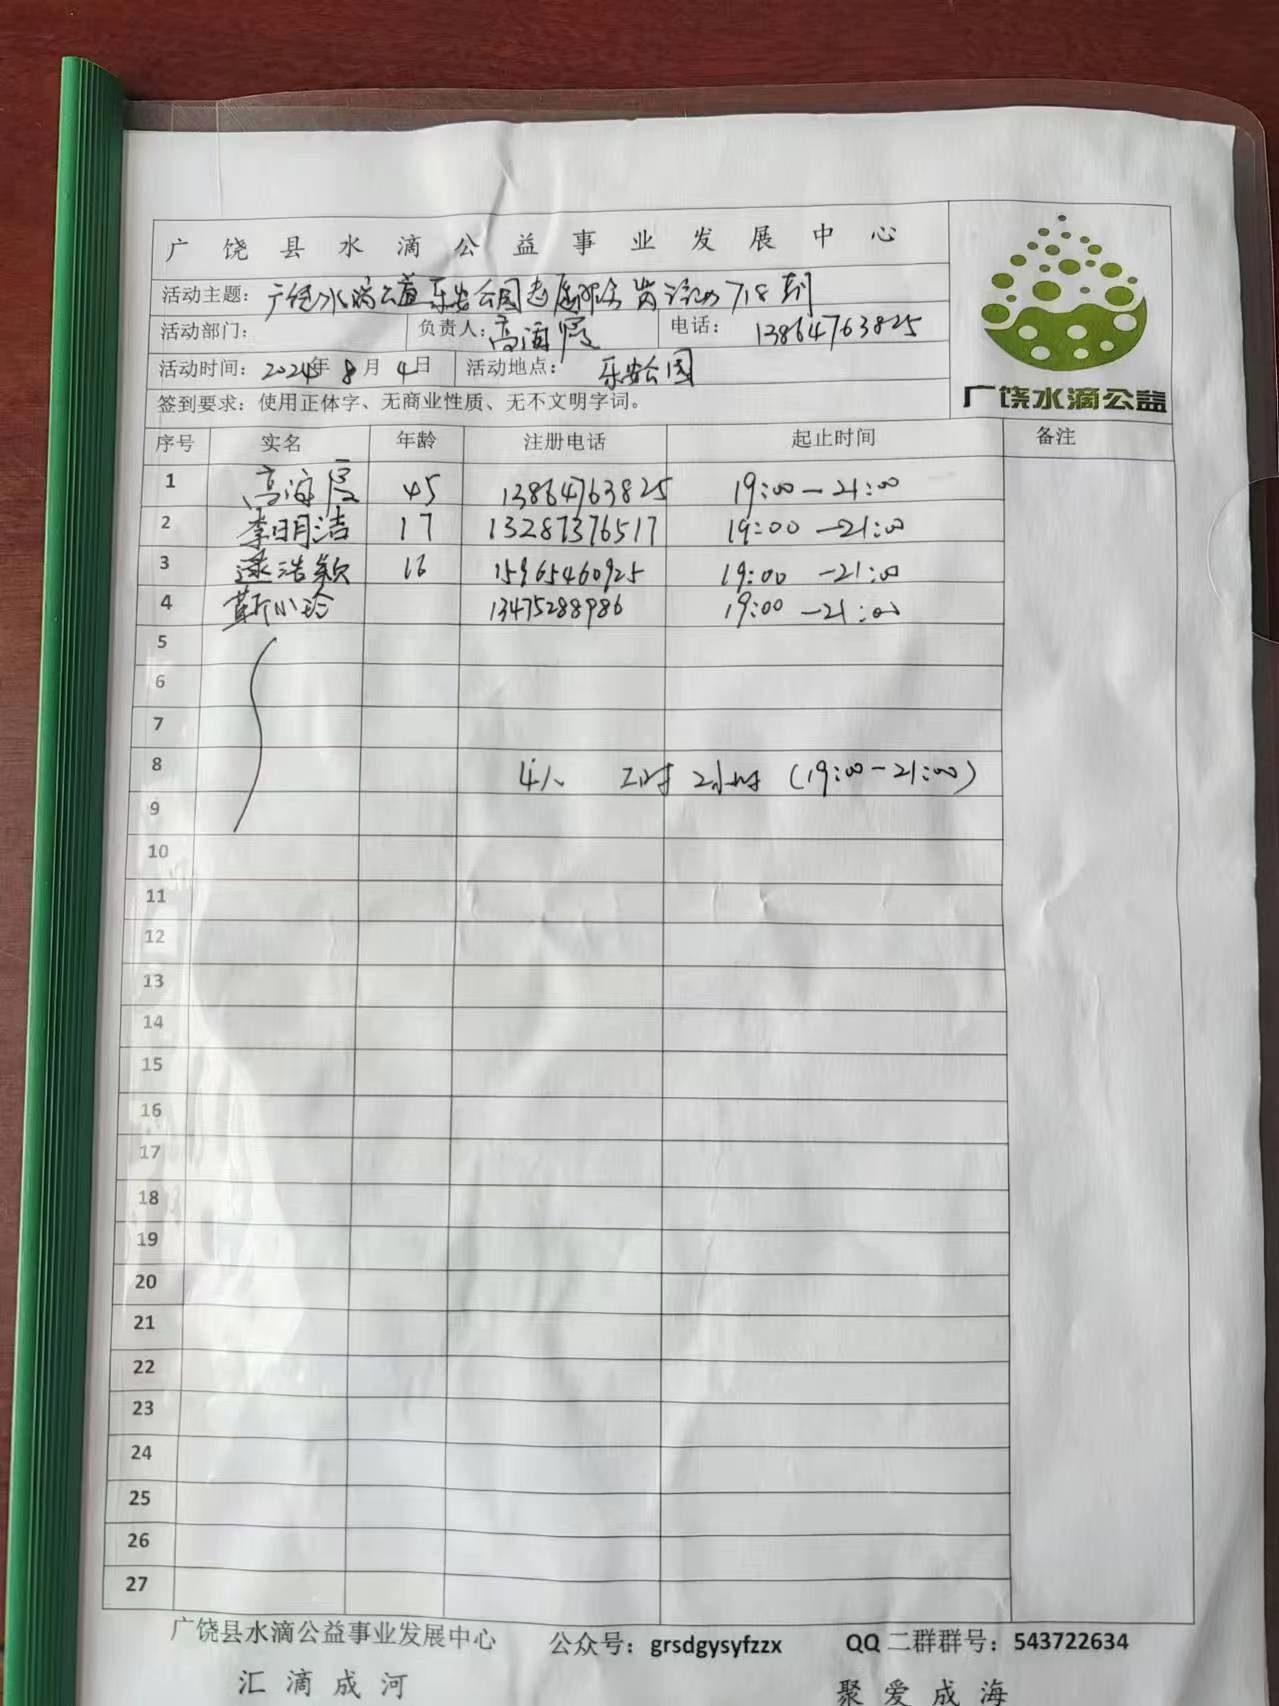 广饶县水滴公益事业发展中心
广饶水滴公益
活动主题：广饶水滴公益乐安公园志愿 718期
活动部门： 负责人：高海霞 电话： 13864763825
活动时间：2024年8月4日 活动地点： 乐安公园
签到要求：使用正体字、无商业性质、无不文明字词。
序号 实名 年龄 注册电话 起止时间 备注
1 高海霞 45 13864763825 19:00—21:00
2 李明洁 17 13287376517 19:00—21:00
3 逯浩颖 16 15965460925 19:00—21:00
4 靳小玲 13475288986 19:00—21:00
5
6
7
8 4人 工时 2小时 (19:00—21:00)
9
10
11
12
13
14
15
16
17
18
19
20
21
22
23
24
25
26
27
广饶县水滴公益事业发展中心 公众号：grsdgysyfzzx QQ二群群号：543722634
汇滴成河 聚爱成海